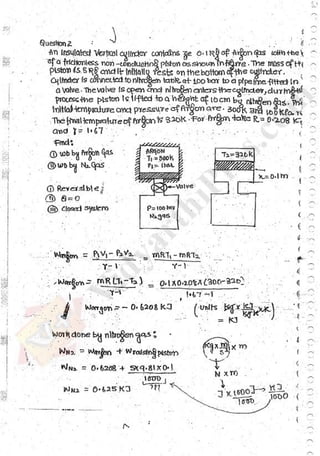 Question 2
An insulated vertical cylinder contains ge 0.1 kg of Argon gas with the
of a frictionless non-conducting piston as shown in figure. The mass of th
piston is 5 kg and it initially rests on the bottom of the cylinder.
Cylinder is connected to nitrogen tank at 100 bar to a pipeline fitted in
a valve. The valve is open and nitrogen enters the cylinder, during
process the piston is lifted to a height of 10cm by nitrogen gas. The
initial temperature and pressure of Argon are. 300K and 100 Kpa
The final temperature of Argon is 320K. For Argon take R = 0.208 KJ
and γ = 1.67
Find:
① WD by Argon Gas
② WD by N2 Gas
① Reversible;
② Q=0
③ Closed System
ARGON
T1 = 300K
P1 = 100K
Valve
P= 100 bar
N2 gas
T2 = 320K
x = 0.1m
WArgon = P1V1 - P2V2 / γ-1 = mRT1 - mRT2 / γ-1
WArgon = mR(T1-T2) / γ-1 = 0.1x0.208x(300-320) / 1.67-1
WArgon = - 0.6208 KJ
(Units Kg x KJ/Kg K x K)
= KJ
Work done by nitrogen gas:
WN2 = WArgon + W raising piston
(Kg x m/s² x m)
WN2 = 0.6208 + 5x9.81x0.1 / 1000
N x m
WN2 = 0.625 KJ
J x 1000 / 1000 → KJ / 1000